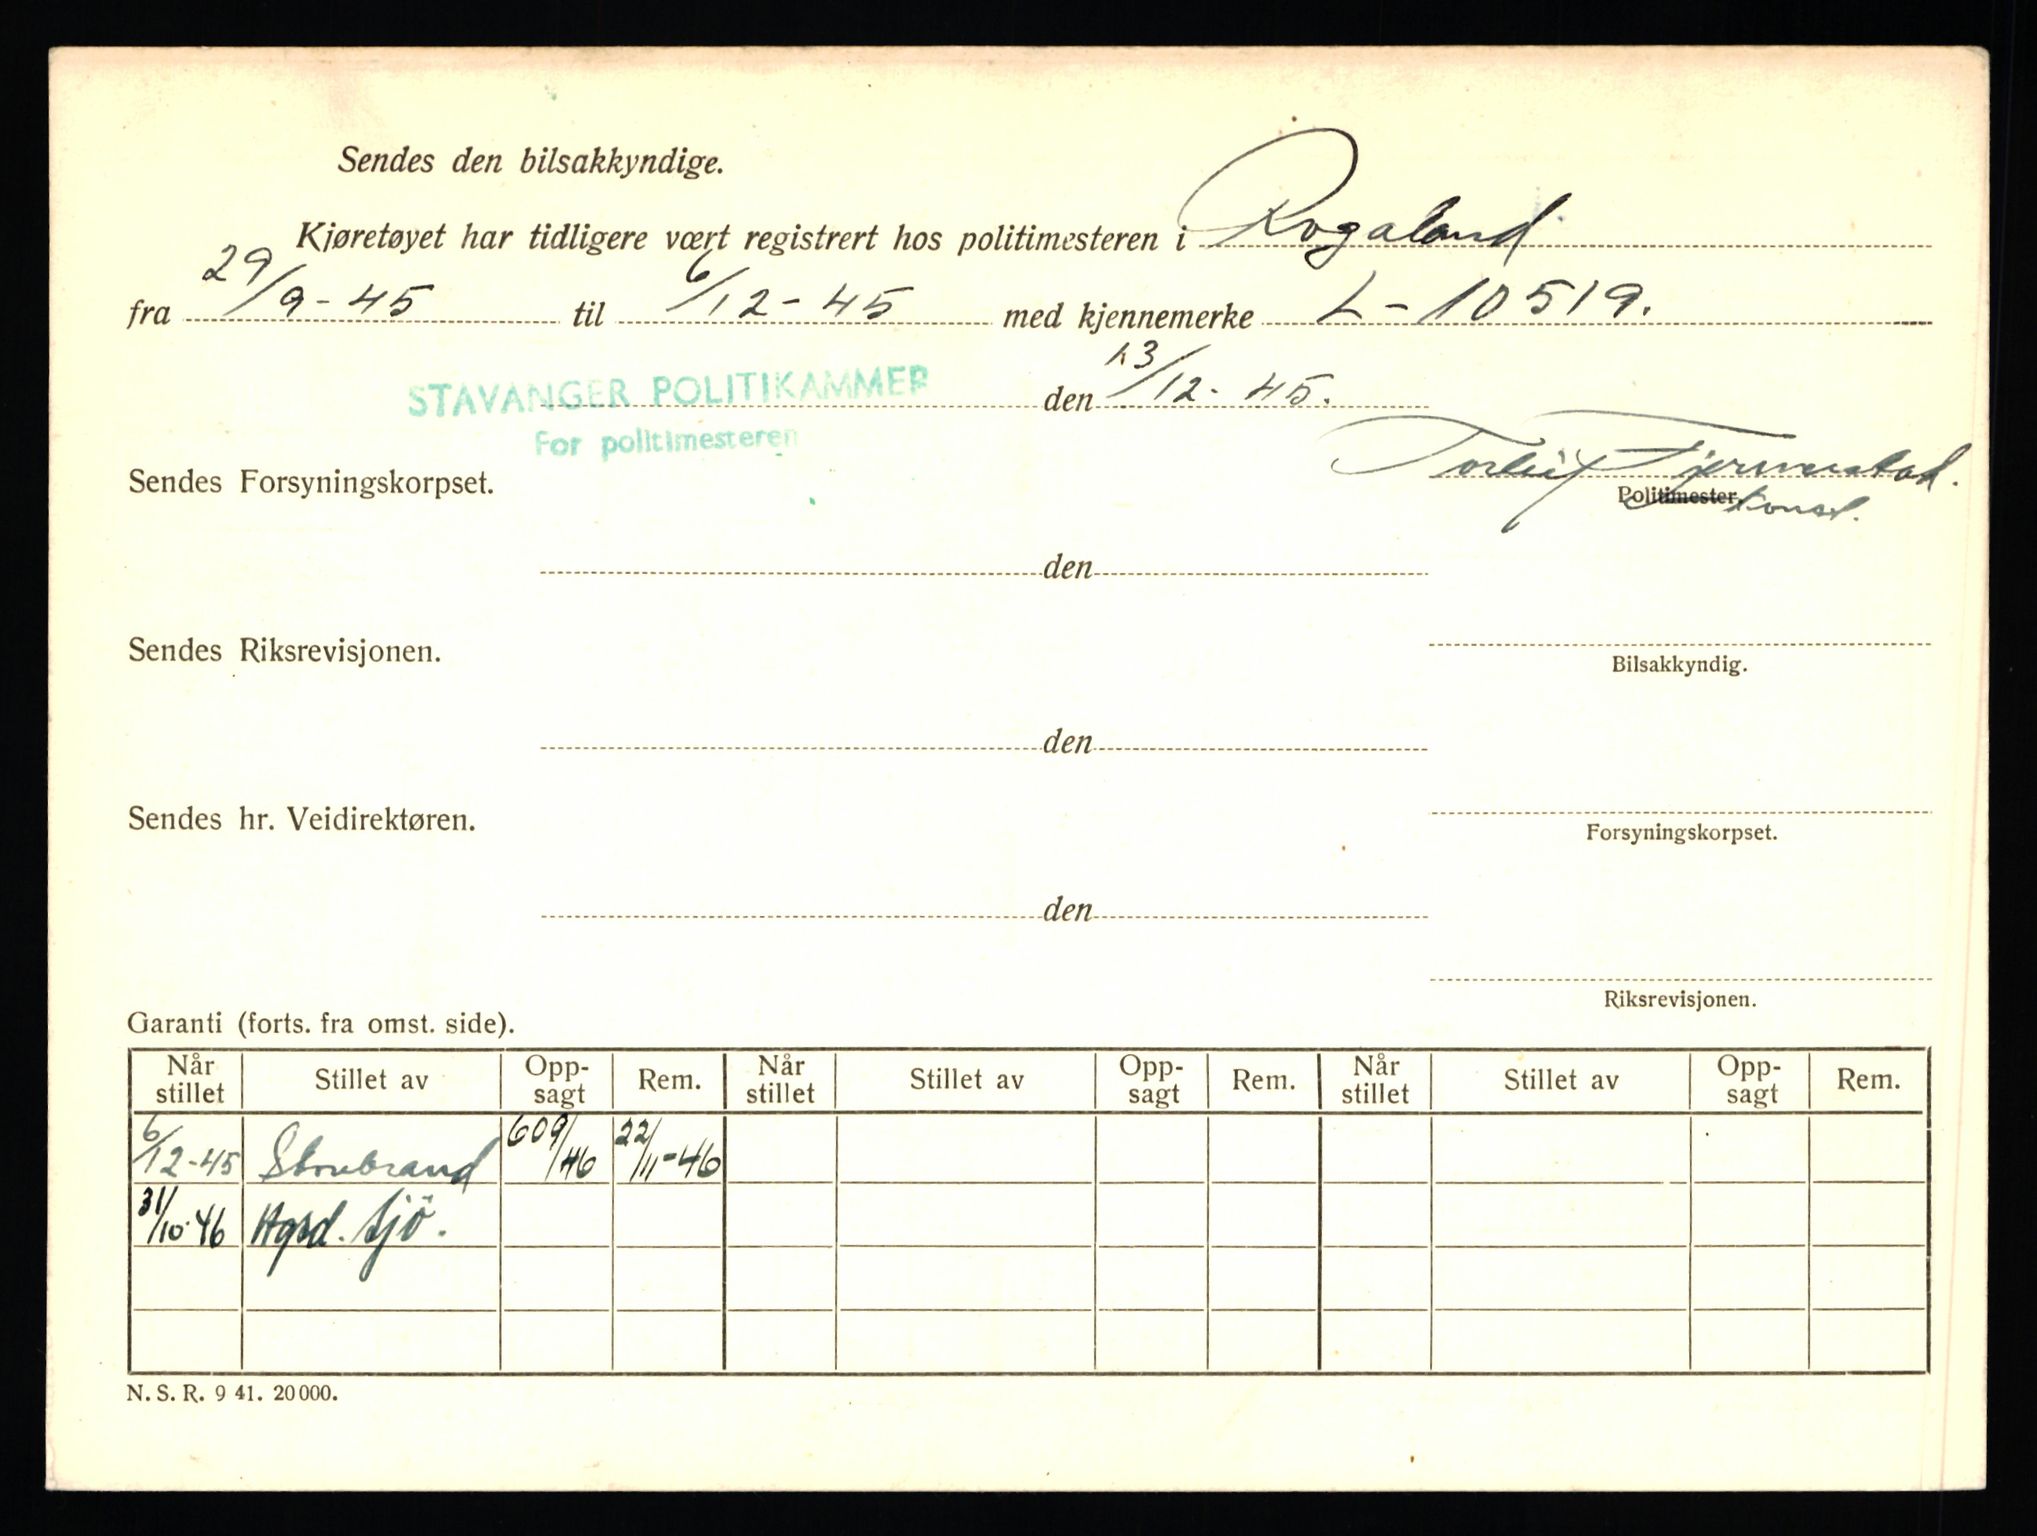 Sendes den bilsakkyndige.
Kjøretøyet har tidligere vært registrert hos politimesteren i Rogaland
fra 29/9-45 til 6/12-45 med kjennemerke L-10519.
STAVANGER POLITIKAMMER den 13/12-45.
For politimesteren
Sendes Forsyningskorpset.
Politimester.
den
Sendes Riksrevisjonen.
Bilsakkyndig.
den
Sendes hr. Veidirektøren.
Forsyningskorpset.
den
Riksrevisjonen.
Garanti (forts. fra omst. side).
Når stillet Stillet av Opp-sagt Rem. Når stillet Stillet av Opp-sagt Rem. Når stillet Stillet av Opp-sagt Rem.
6/12-45 Storebrand 609/46 22/11-46
31/10-46 Sjö.
N. S. R. 9 41. 20000.